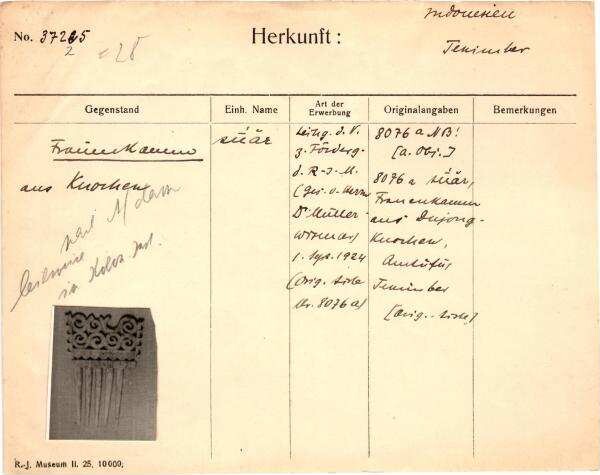 No. 37265
2
= 28
Herkunft:
Indonesien
Tenimber
Gegenstand
Einh. Name
Art der
Erwerbung
Originalangaben
Bemerkungen
Frauenkamm
aus Knochen
leihweise
in Kolon. Inst.
suär
Leihg. d. V.
z. Förderg.
d. R-J-M.
(Ges. v. Herrn
Dr Müller-
Wismar)
1. Sept. 1924
(Orig. Liste
Nr. 8076 a)
8076 a NB!
[a. Obj.]
8076 a suär,
Frauenkamm
aus Dujong-
Knochen,
Amtufus
Tenimber
[Orig.-Liste]
R.-J. Museum II. 25. 10000.